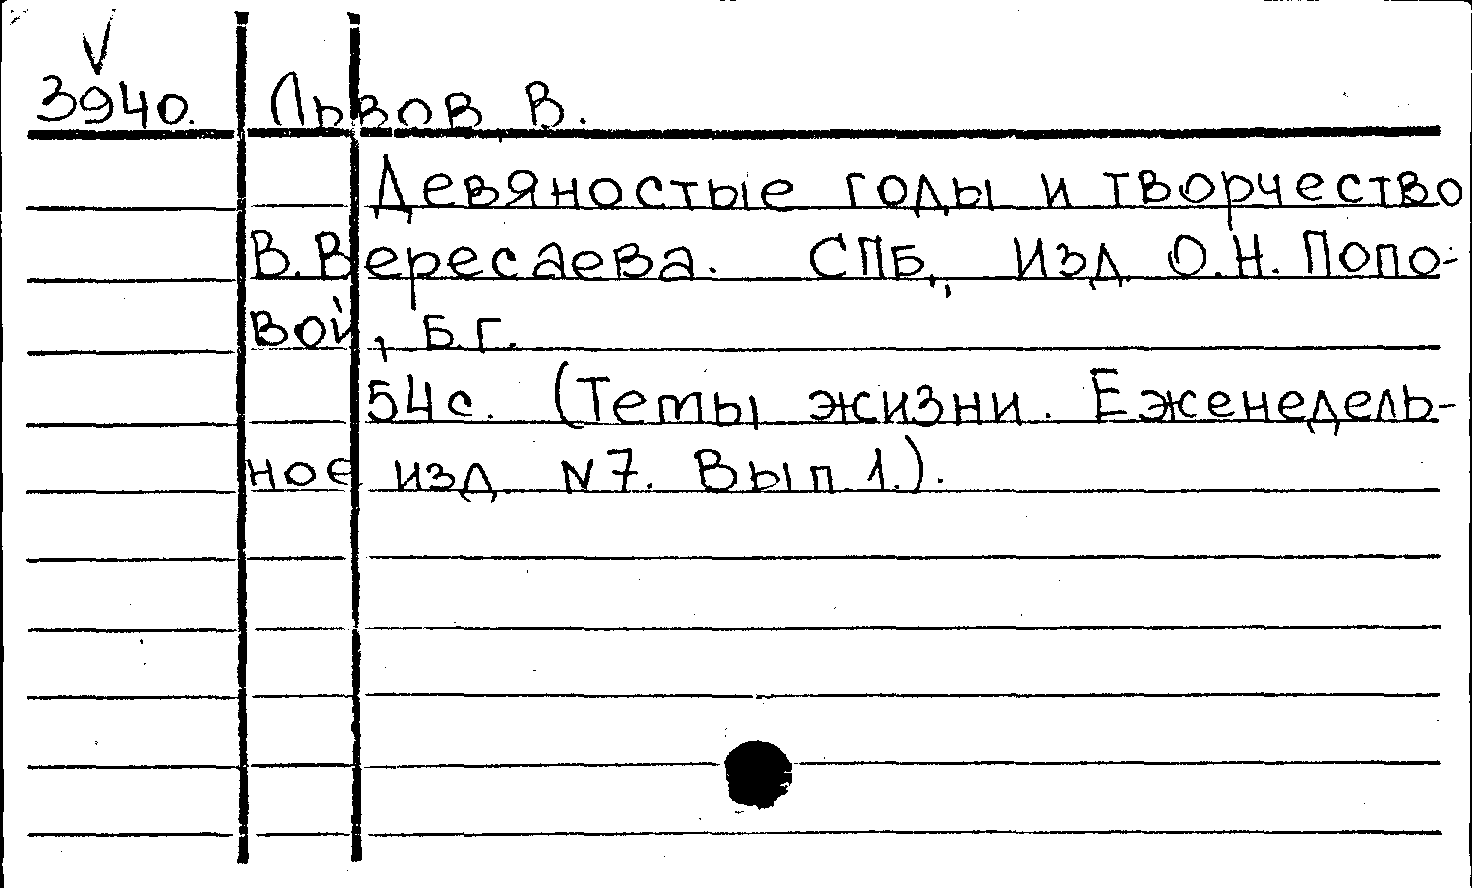 V
3940. Львов В.
Девяностые годы и творчество
В. Вересаева. СПБ., изд. О.Н. Попо-
вой, Б.г.
54с. (Темы жизни. Еженедель-
ное изд. N7. Вып 1.).